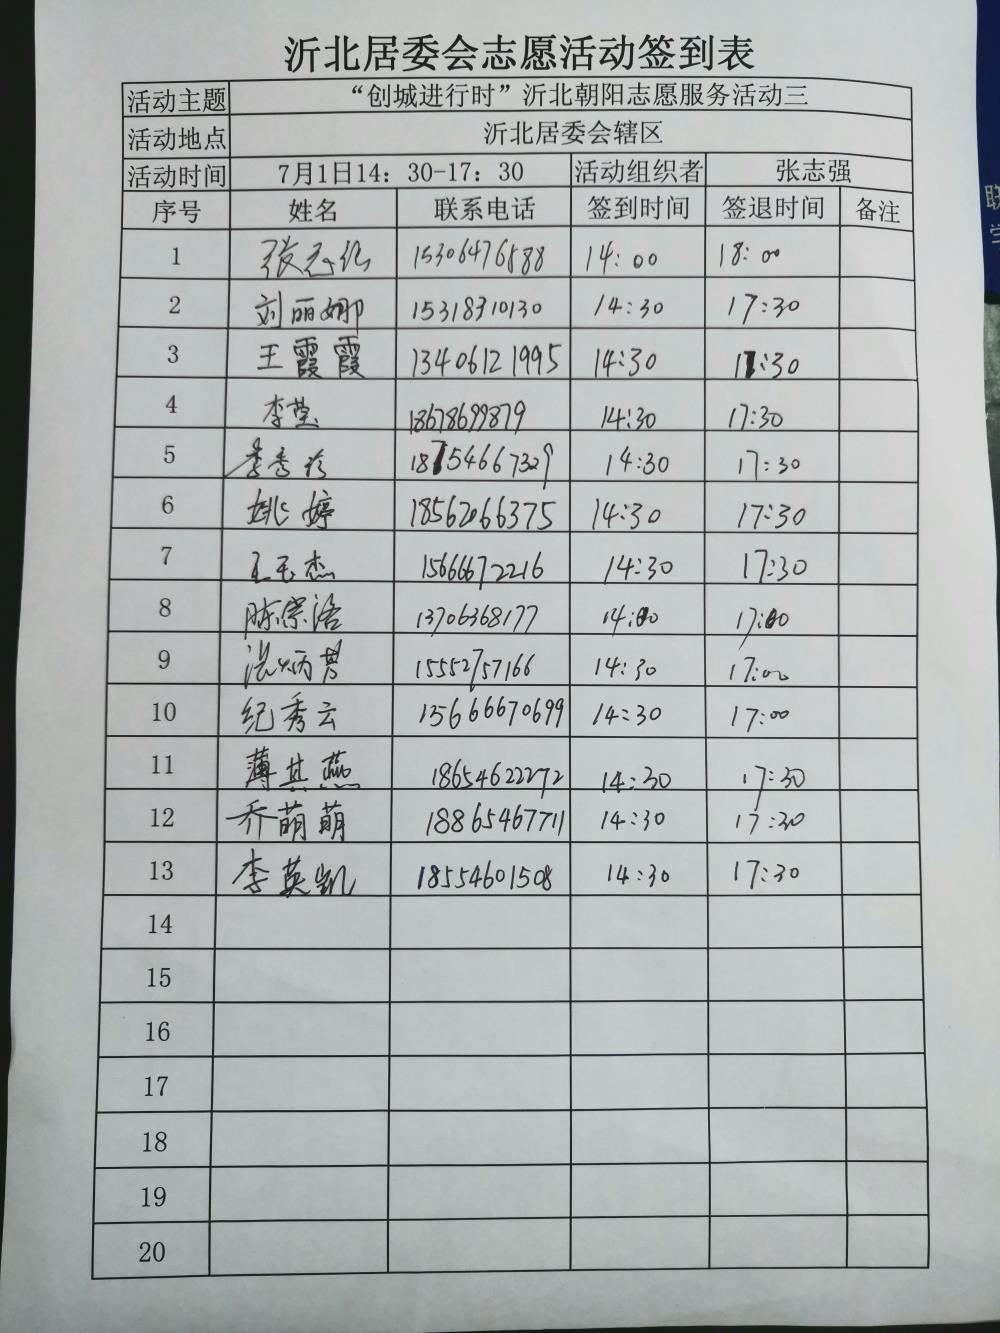 沂北居委会志愿活动签到表
活动主题 “创城进行时”沂北朝阳志愿服务活动三
活动地点 沂北居委会辖区
活动时间 7月1日14：30-17：30 活动组织者 张志强
序号 姓名 联系电话 签到时间 签退时间 备注
1 15306476588 14:00 18:00
2 刘丽娜 15318310130 14:30 17:30
3 王霞霞 13406121995 14:30 17:30
4 李莹 18678699879 14:30 17:30
5 李秀珍 18754667329 14:30 17:30
6 姚婷 18562066375 14:30 17:30
7 王玉杰 15666672216 14:30 17:30
8 陈宗浩 13706368177
9 15552757166 14:30 17:00
10 纪秀云 15666670699 14:30 17:00
11 薄其燕 18654622272 14:30 17:30
12 乔萌萌 18865467711 14:30 17:30
13 李英凯 18554601508 14:30 17:30
14
15
16
17
18
19
20